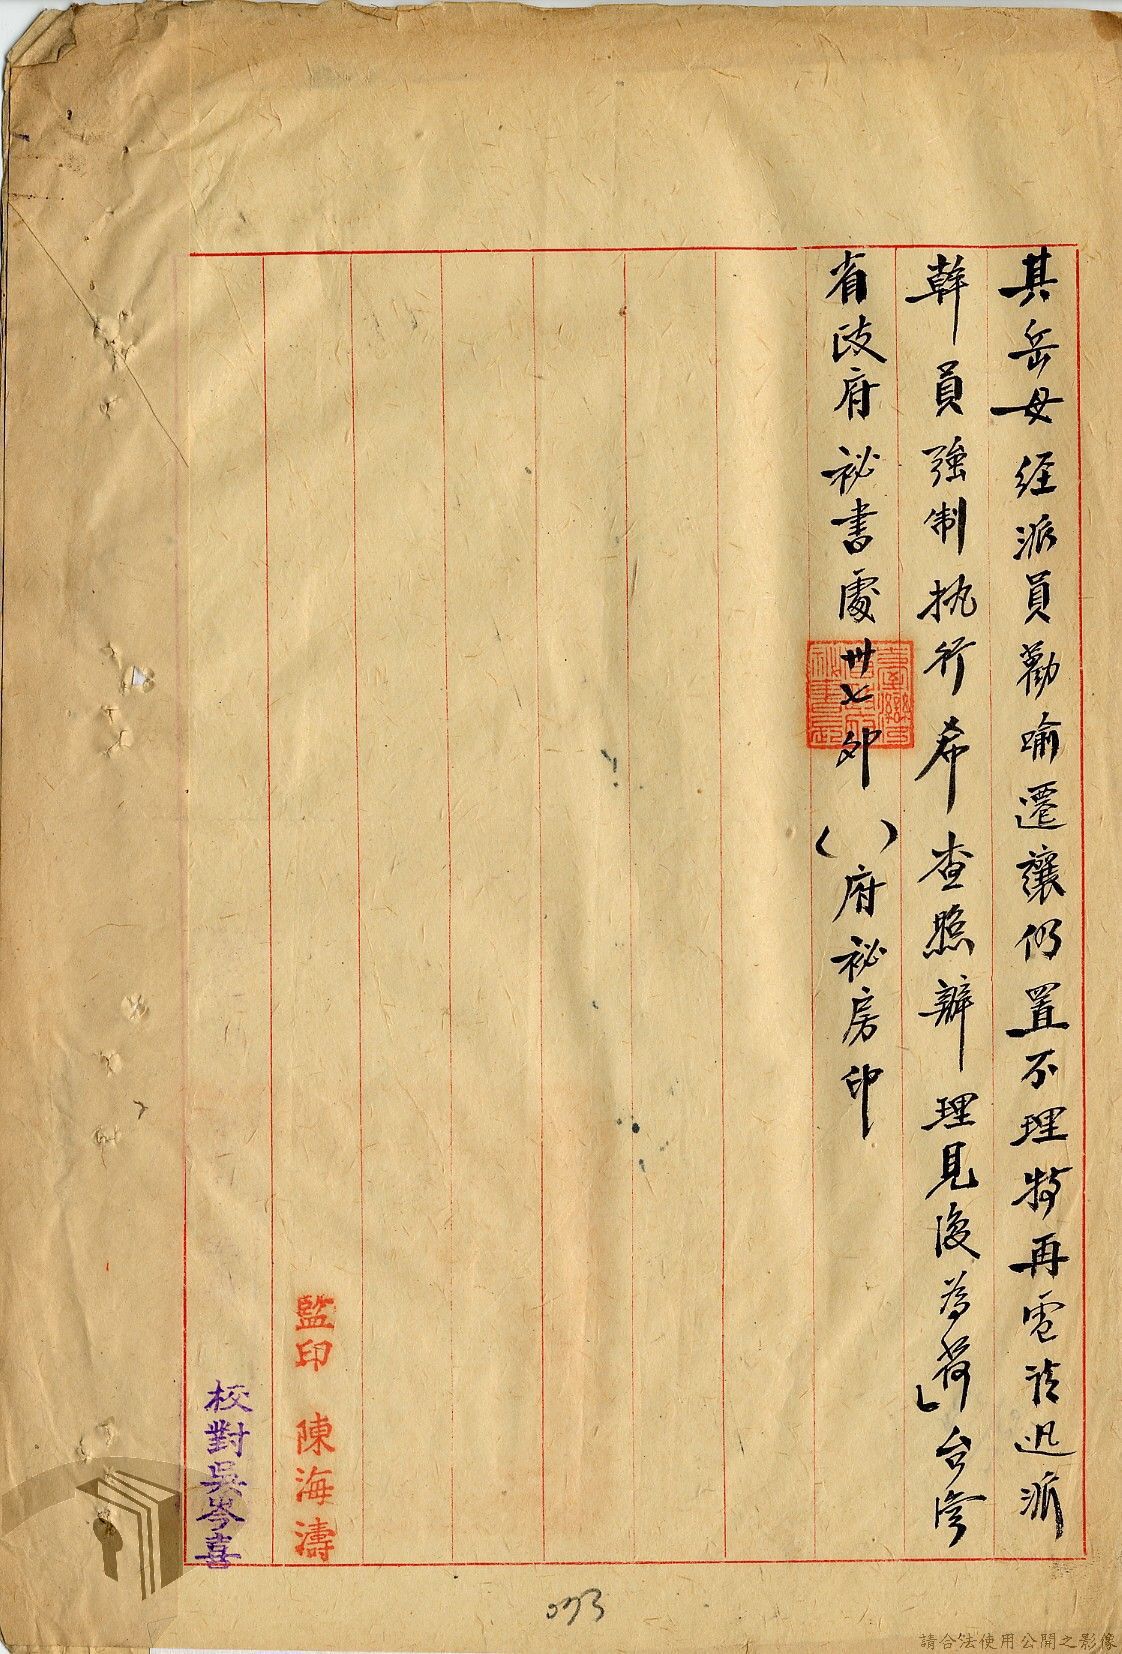 其岳母经派員勸喻遷讓仍置不理特再電請迅派
幹員強制执行希查照辦理見復為荷」台湾
省政府祕書處卅七卯( )府祕房印
監印 陳海濤
校對吳岑喜
073
請合法使用公開之影像